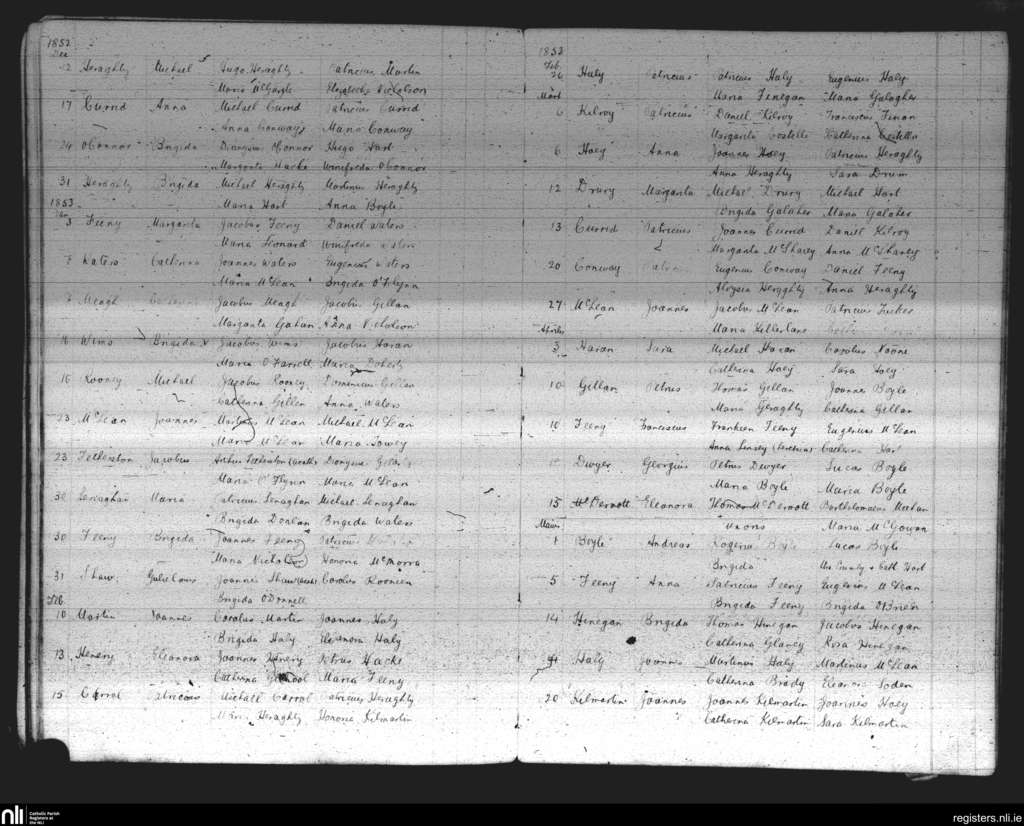 1852
Dec
12 Heraghty Michael Hugo Heraghty Patricius Martin
Maria Nicholson
17 Currid Anna Michael Currid Patricius Currid
Anna Conway Maria Conway
24 OConnor Brigida Dionysius OConnor Hugo Hart
Margarita Hacke Winifreda OConnor
31 Heraghty Brigida Michael Heraghty Martinus Heraghty
1853 Maria Hart Anna Boyle
Jan
3 Feeny Margarita Jacobus Feeny Daniel Waters
Maria Leonard Winifreda Waters
7 Waters Catherina Joannes Waters Eugenius Waters
Maria McLean Brigida O'Flynn
7 Meagh Jacobus Meagh Jacobus Gillan
Margarita Gahan Anna Nicholson
16 Wims Brigida Jacobus Wims Jacobus Haran
Maria O'Farrell Maria Doherty
16 Rooney Michael Jacobus Rooney Dominicus Gillen
Catherina Gillen Anna Waters
23 McLean Joannes Martinus McLean Michael McLean
Maria McLean Maria Towey
23 Jacobus Dionysius
Maria O'Flynn Maria McLean
30 Lenaghan Maria Patricius Lenaghan Michael Lenaghan
Brigida Donlan Brigida Waters
30 Feeny Brigida Joannes Feeny Patricius
Maria Nicholson Honoria McMorrow
31 Shaw Joannes Shaw Carolus
Feb Brigida ODonnell
10 Martin Joannes Carolus Martin Joannes Haly
Brigida Haly Eleanora Haly
13 Henery Eleanora Joannes Henery Petrus Hacke
Catherina Maria Feeny
15 Carrol Patricius Michael Carrol Patricius Heraghty
Heraghty Honoria Kilmartin
1853
Feb
26 Haly Patricius Patricius Haly Eugenius Haly
Mart Maria Finegan Maria Galagher
6 Kilroy Patricius Daniel Kilroy Franciscus Finan
Margarita Costello Catherina Costello
6 Hoey Anna Joannes Hoey Patricius Heraghty
Anna Heraghty Sara Drum
12 Drury Margarita Michael Drury Michael Hart
Brigida Galaher Maria Galaher
13 Currid Patricius Joannes Currid Daniel Kilroy
Margarita McSharey Anna McSharey
20 Conway Eugenius Conway Daniel Feeny
Aloysia Heraghty Anna Heraghty
27 McLean Joannes Jacobus McLean Patricius Tucker
Aprilis Maria
3 Haran Sara Michael Haran Carolus Noone
Catherina Hoey Sara Hoey
10 Gillan Petrus Thomas Gillan Joannes Boyle
Maria Geraghty Catherina Gillan
10 Feeny Franciscus Feeny Eugenius McLean
Anna Catherina
Dwyer Georgius Petrus Dwyer Lucas Boyle
Maria Boyle Maria Boyle
15 McDermott Eleanora Thomas McDermott Bartholomaeus Meehan
Maius Maria McGowan
1 Boyle Andreas Rogerius Boyle Lucas Boyle
Brigida Cath Hart
5 Feeny Anna Patricius Feeny Eugenius McLean
Brigida Feeny Brigida OBrien
14 Henegan Brigida Thomas Henegan Jacobus Henegan
Catherina Glancy Rosa Henegan
Haly Joannes Martinus Haly Martinus McLean
Catherina Brady Eleanora Soden
20 Kilmartin Joannes Joannes Kilmartin Joannes Hoey
Catherina Kilmartin Sara Kilmartin
nli Catholic Parish Registers at the NLI
registers.nli.ie